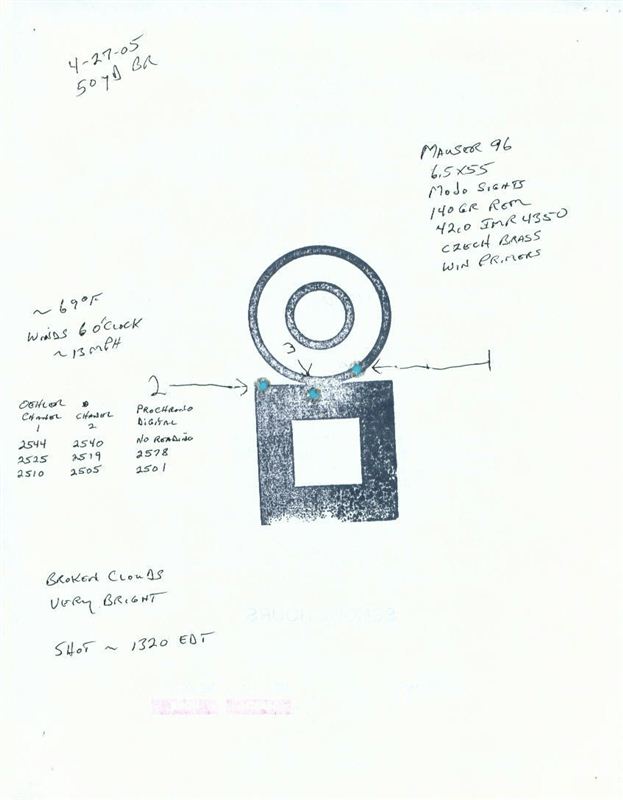 4-27-05
50 yd BR
MAUSER 96
6.5x55
MOJO SIGHTS
140 GR REM
42.0 IMR 4350
CZECH BRASS
WIN PRIMERS
~ 69°F
WINDS 6 O'CLOCK
~ 13 MPH
3
1
2
OEHLER CHANNEL 1
CHANNEL 2
PROCHRONO DIGITAL
2544 2540 NO READING
2525 2519 2578
2510 2505 2501
BROKEN CLOUDS
VERY BRIGHT
SHOT ~ 1320 EDT